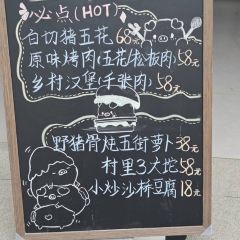 必点(HOT)
白切猪五花68元
原味烤肉(五花/松板肉)58元
乡村汉堡(千张肉)58元
野猪骨炖五街萝卜38元
村里3大坨58元
小炒沙桥豆腐18元